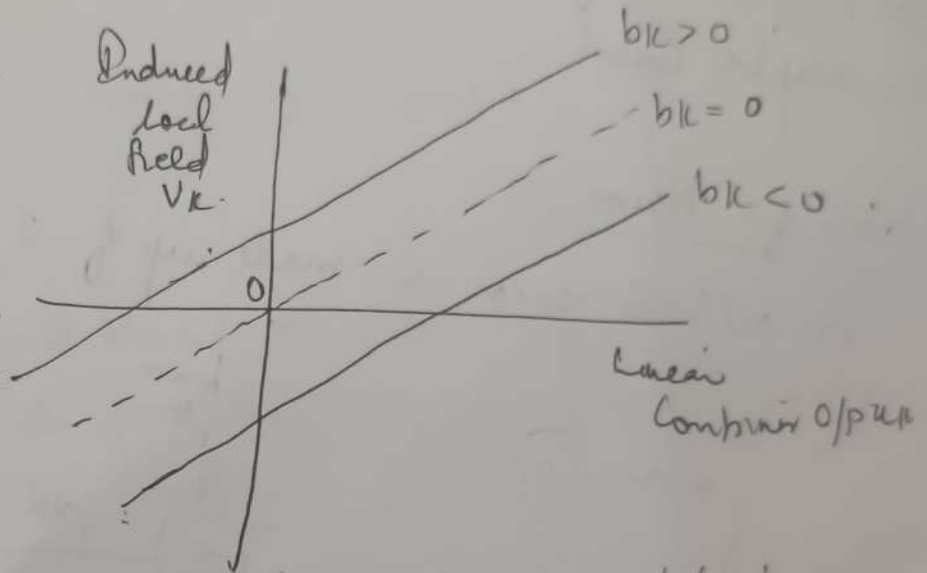 Induced
local
field
Vk.
bk > 0
bk = 0
bk < 0
0
Linear
Combiner O/P uk